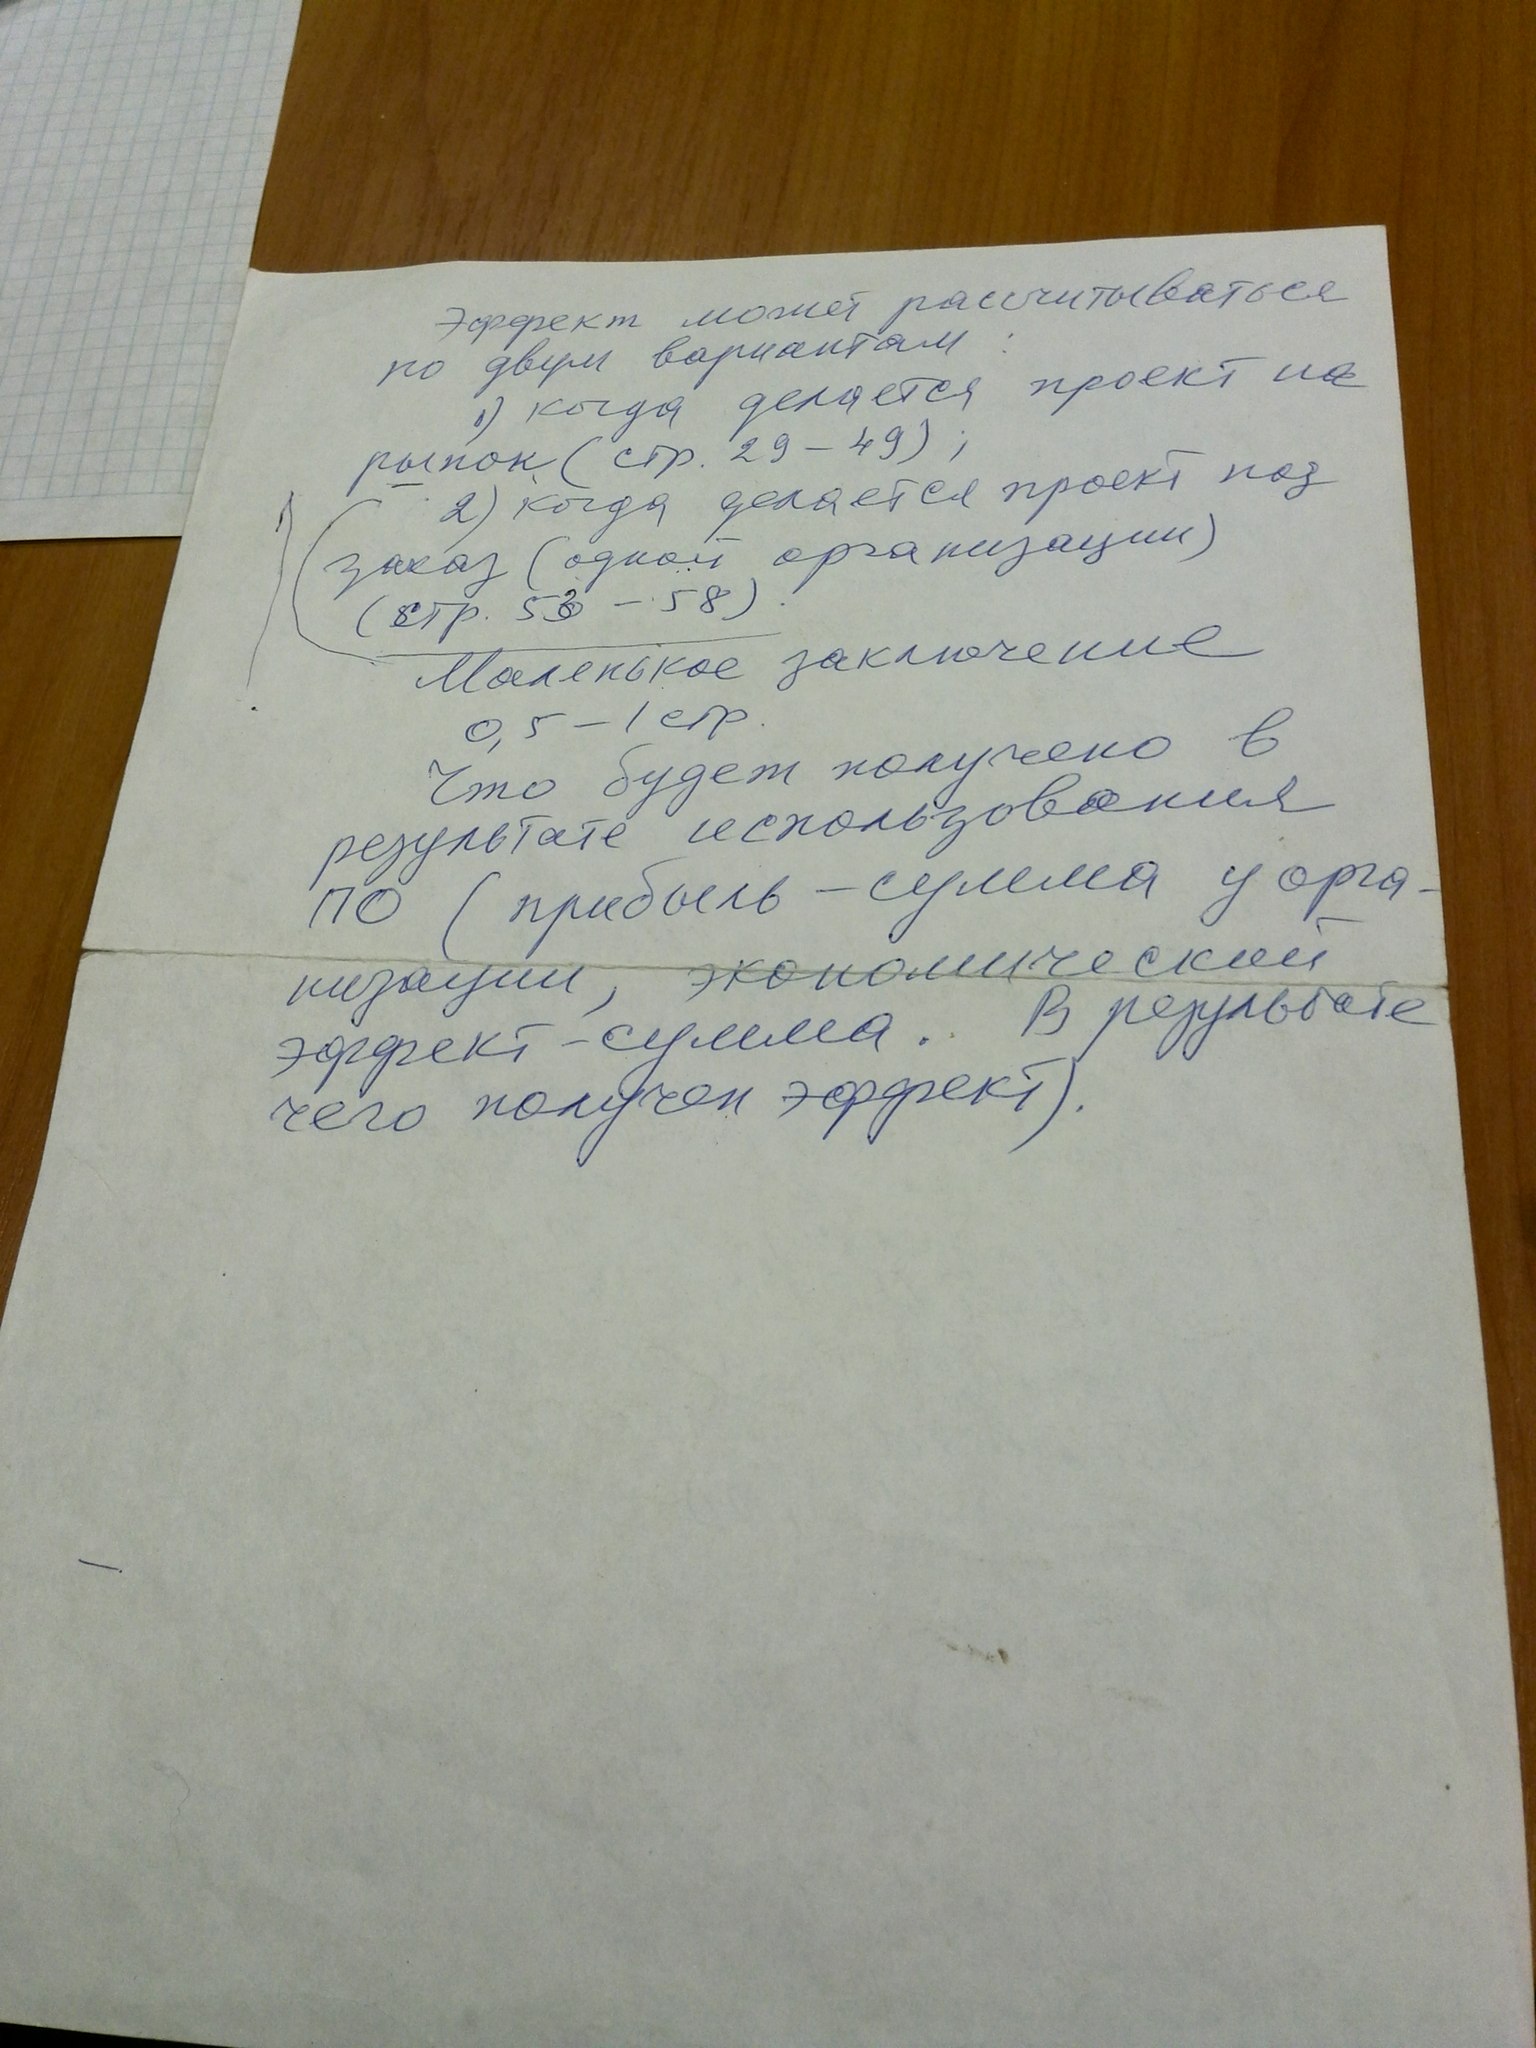 Эффект может рассчитываться
по двум вариантам:
1) когда делается проект на
рынок (стр. 29-49);
2) когда делается проект под
заказ (одной организации)
(стр. - 58).
Маленькое заключение
0,5 - 1 стр.
Что будет получено в
результате использования
ПО (прибыль - сумма у орга-
низации, экономический
эффект - сумма. В результате
чего получен эффект).